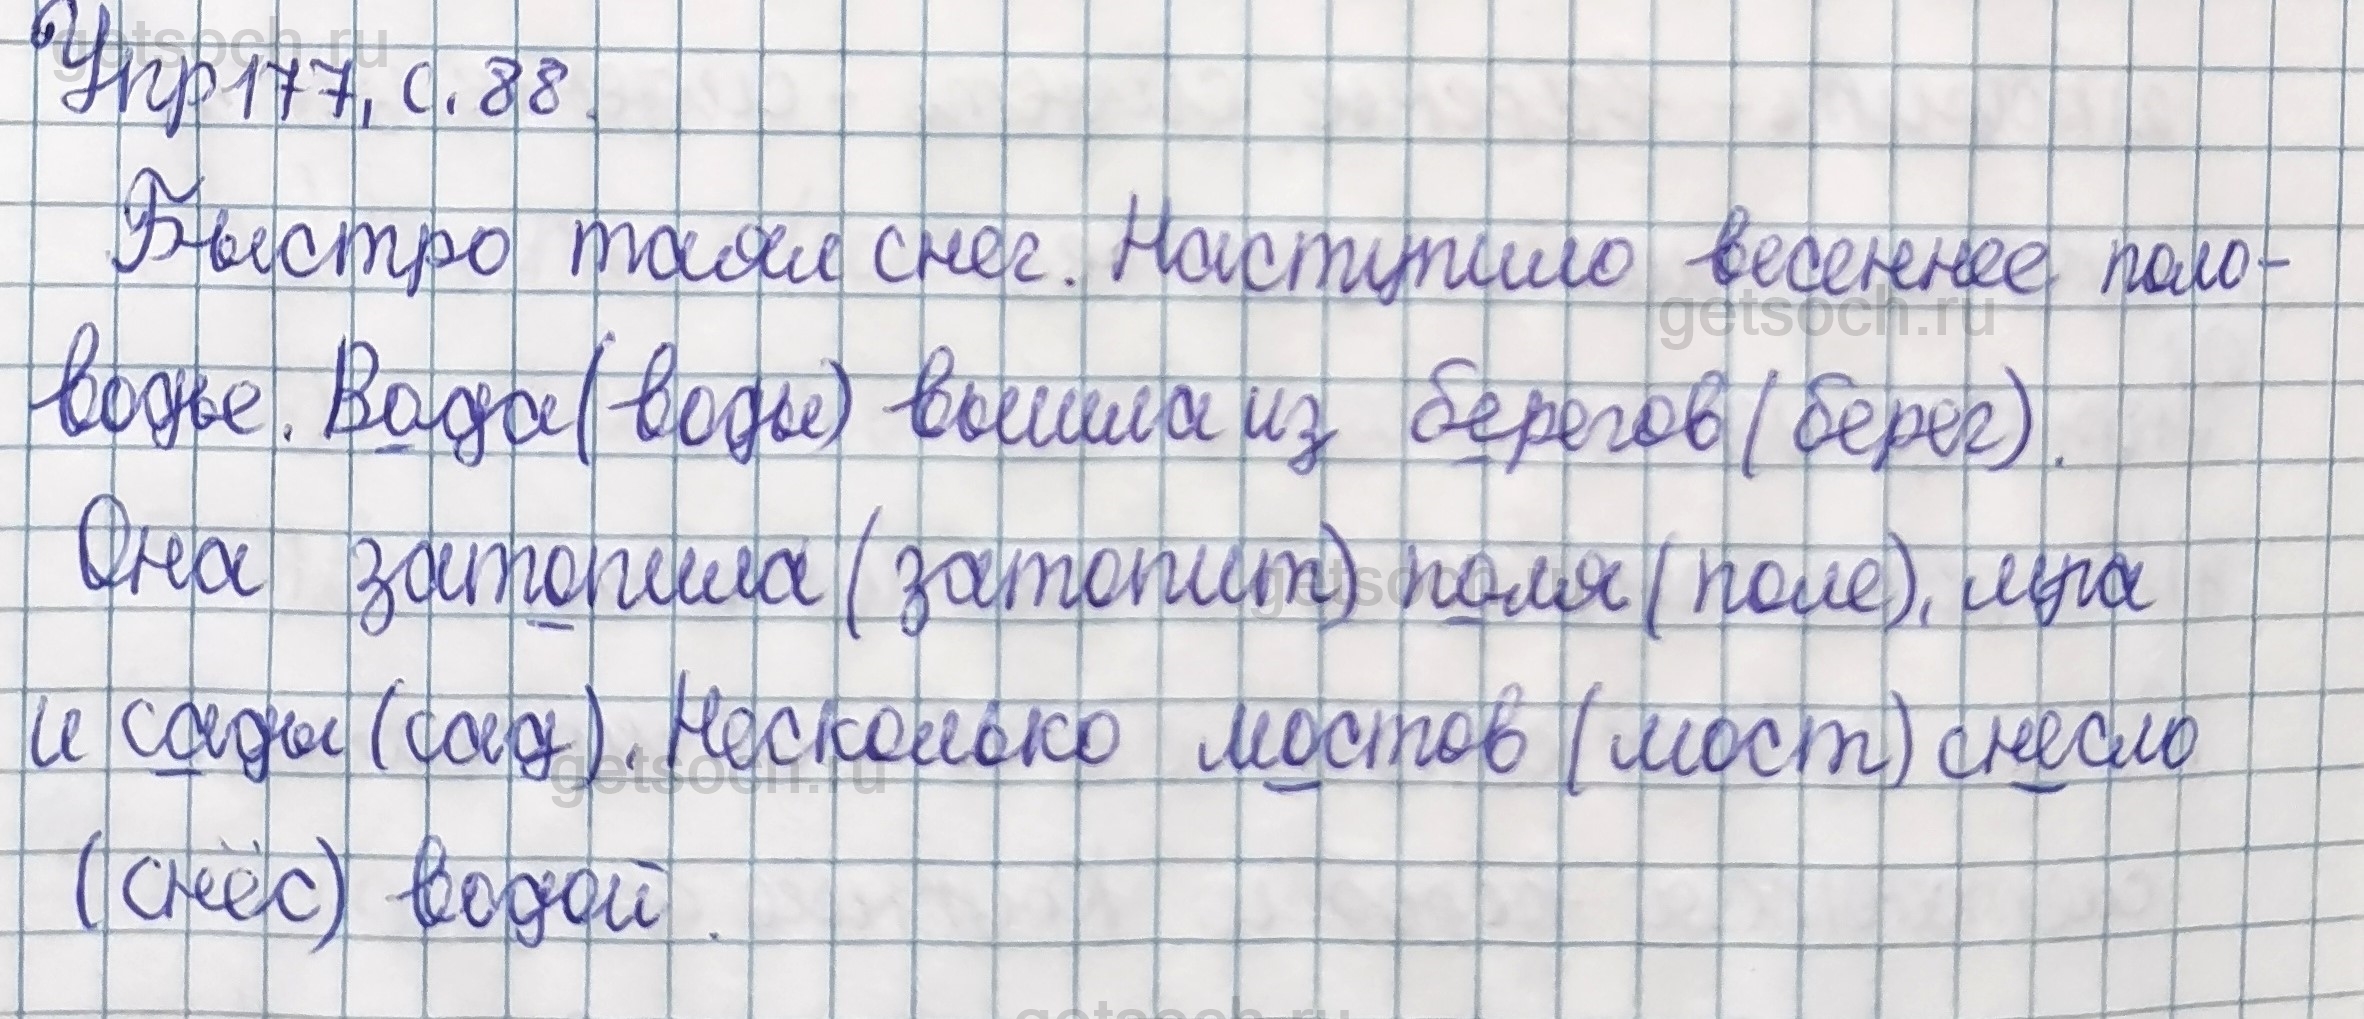 Упр 177, с. 88.
Быстро таял снег. Наступило весеннее поло-
водье. Вода (воды) вышла из берегов (берег).
Она затопила (затопит) поля (поле), луга
и сады (сад). Несколько мостов (мост) снесло
(снёс) водой.
getsoch.ru
getsoch.ru
getsoch.ru
getsoch.ru
getsoch.ru